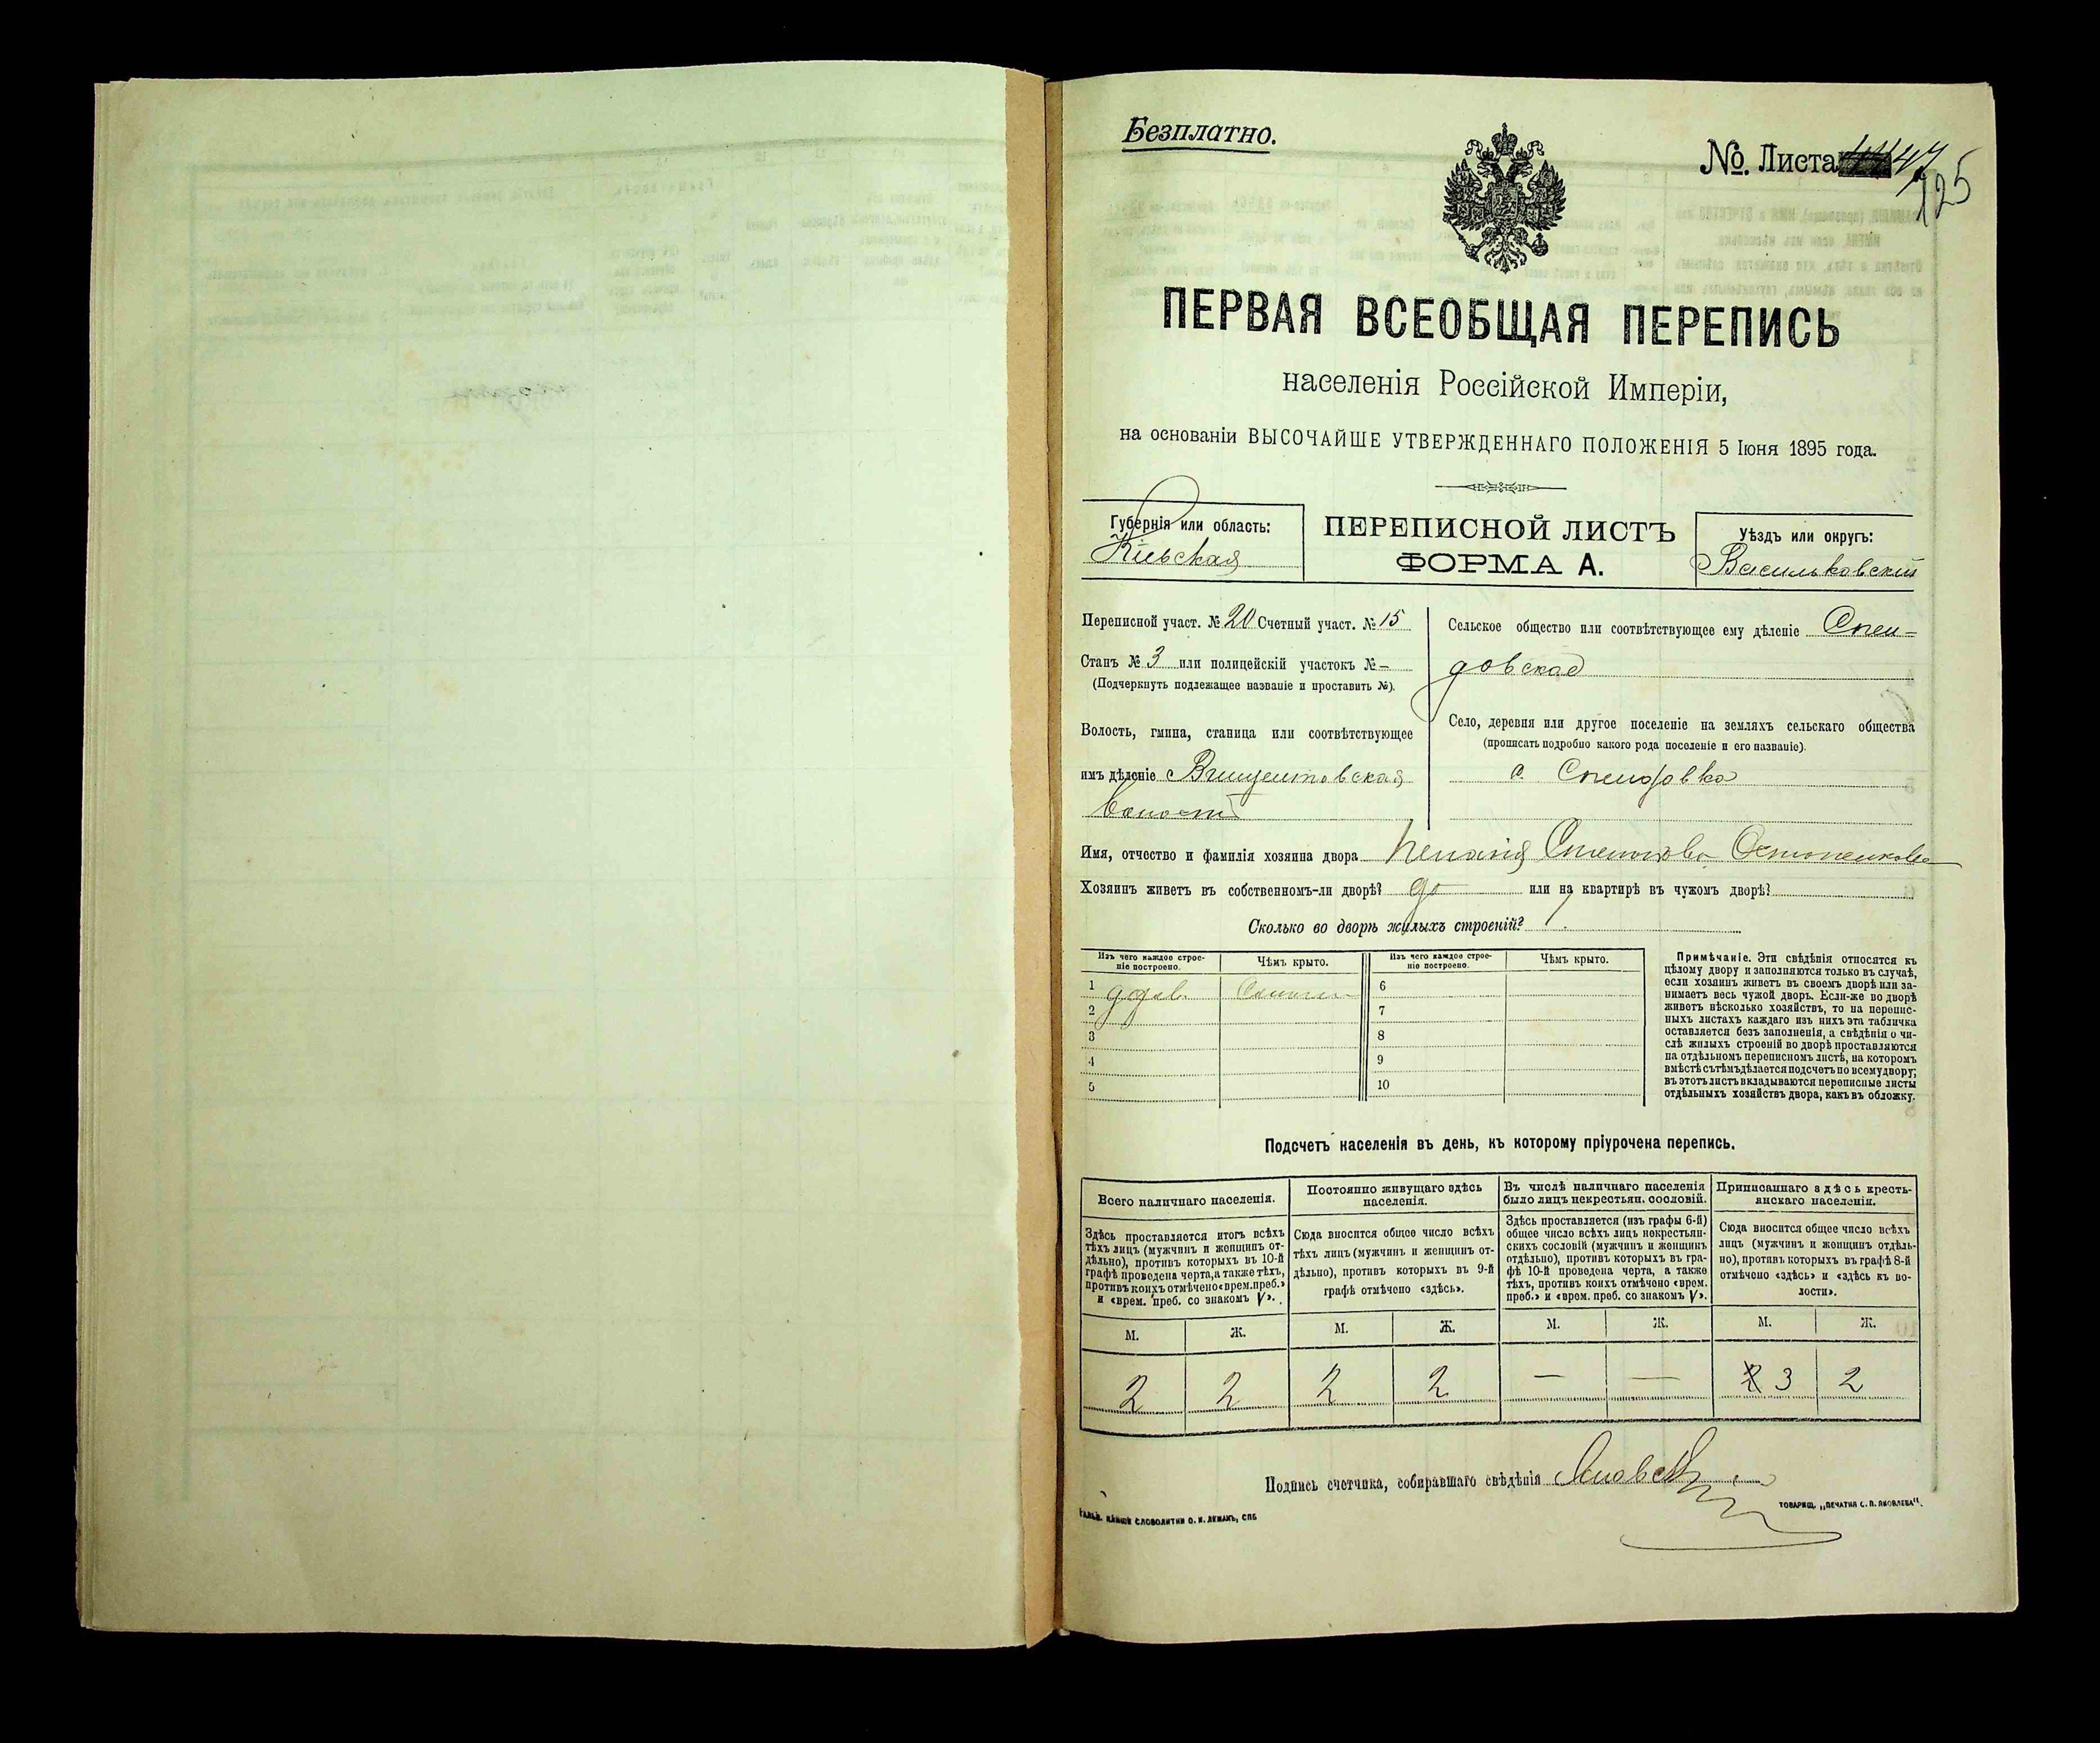 Безплатно.
№. Листа 47
125
ПЕРВАЯ ВСЕОБЩАЯ ПЕРЕПИСЬ
населенія Россійской Имперіи,
на основаніи ВЫСОЧАЙШЕ УТВЕРЖДЕННАГО ПОЛОЖЕНІЯ 5 Іюня 1895 года.
Губернія или область:
Кіевская
ПЕРЕПИСНОЙ ЛИСТЪ
ФОРМА А.
Уѣздъ или округъ:
Васильковскій
Переписной участ. № 20 Счетный участ. № 15
Станъ № 3 или полицейскій участокъ № —
(Подчеркнуть подлежащее названіе и проставить №).
Волость, гмина, станица или соотвѣтствующее
имъ дѣленіе Винцентовская
волость
Сельское общество или соотвѣтствующее ему дѣленіе Спен-
довская
Село, деревня или другое поселеніе на земляхъ сельскаго общества
(прописать подробно какого рода поселеніе и его названіе).
с. Спендовка
Имя, отчество и фамилія хозяина двора
Хозяинъ живетъ въ собственномъ-ли дворѣ? да или на квартирѣ въ чужомъ дворѣ?
Сколько во дворѣ жилыхъ строеній? 1
Изъ чего каждое строе-
ніе построено.
Чѣмъ крыто.
1
2
3
4
5
Изъ чего каждое строе-
ніе построено.
Чѣмъ крыто.
6
7
8
9
10
Примѣчаніе. Эти свѣдѣнія относятся къ
цѣлому двору и заполняются только въ случаѣ,
если хозяинъ живетъ въ своемъ дворѣ или за-
нимаетъ весь чужой дворъ. Если-же во дворѣ
живетъ нѣсколько хозяйствъ, то на перепис-
ныхъ листахъ каждаго изъ нихъ эта табличка
оставляется безъ заполненія, а свѣдѣнія о чи-
слѣ жилыхъ строеній во дворѣ проставляются
на отдѣльномъ переписномъ листѣ, на которомъ
вмѣстѣ съ тѣмъ дѣлается подсчетъ по всему двору;
въ этотъ листъ вкладываются переписные листы
отдѣльныхъ хозяйствъ двора, какъ въ обложку.
Подсчетъ населенія въ день, къ которому пріурочена перепись.
Всего наличнаго населенія.
Здѣсь проставляется итогъ всѣхъ
тѣхъ лицъ (мужчинъ и женщинъ от-
дѣльно), противъ которыхъ въ 10-й
графѣ проведена черта, а также тѣхъ,
противъ коихъ отмѣчено «врем. преб.»
и «врем. преб. со знакомъ V».
М. Ж.
2 2
Постоянно живущаго здѣсь
населенія.
Сюда вносится общее число всѣхъ
тѣхъ лицъ (мужчинъ и женщинъ от-
дѣльно), противъ которыхъ въ 9-й
графѣ отмѣчено «здѣсь».
М. Ж.
2 2
Въ числѣ наличнаго населенія
было лицъ некрестьян. сословій.
Здѣсь проставляется (изъ графы 6-й)
общее число всѣхъ лицъ некрестьян-
скихъ сословій (мужчинъ и женщинъ
отдѣльно), противъ которыхъ въ гра-
фѣ 10-й проведена черта, а также
тѣхъ, противъ коихъ отмѣчено «врем.
преб.» и «врем. преб. со знакомъ V».
М. Ж.
— —
Приписаннаго здѣсь кресть-
янскаго населенія.
Сюда вносится общее число всѣхъ
лицъ (мужчинъ и женщинъ отдѣль-
но), противъ которыхъ въ графѣ 8-й
отмѣчено «здѣсь» и «здѣсь къ во-
лости».
М. Ж.
3 2
Подпись счетчика, собиравшаго свѣдѣнія
СЛОВОЛИТНИ О. И. ЛЕМАНЪ, СПБ
ТОВАРИЩ. „ПЕЧАТНЯ С. П. ЯКОВЛЕВА".